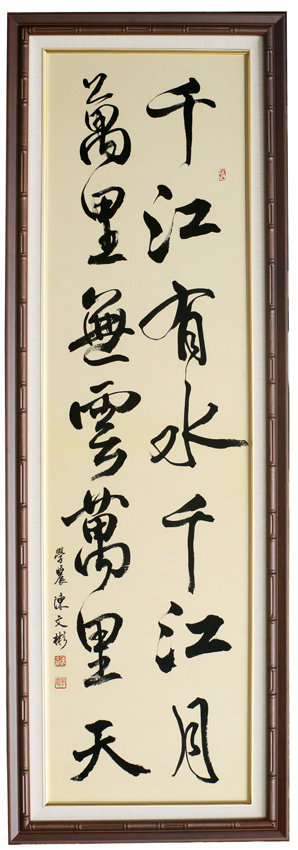 千江有水千江月
萬里無雲萬里天
學農 陳文彬